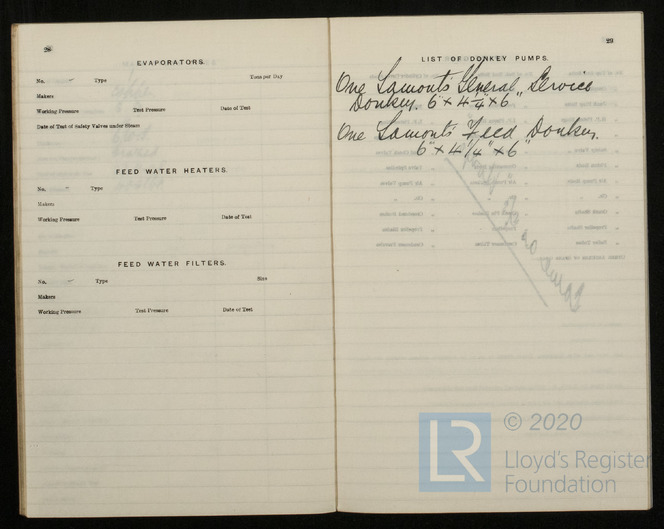 28
EVAPORATORS.
No. – Type Tons per Day
Makers
Working Pressure Test Pressure Date of Test
Date of Test of Safety Valves under Steam
FEED WATER HEATERS.
No. – Type
Makers
Working Pressure Test Pressure Date of Test
FEED WATER FILTERS.
No. – Type Size
Makers
Working Pressure Test Pressure Date of Test
29
LIST OF DONKEY PUMPS.
One Lamont's General Service
Donkey. 6" × 4¼ × 6"
One Lamont's Feed Donkey.
6" × 4 1/4" × 6"
© 2020
LR
Lloyd's Register
Foundation